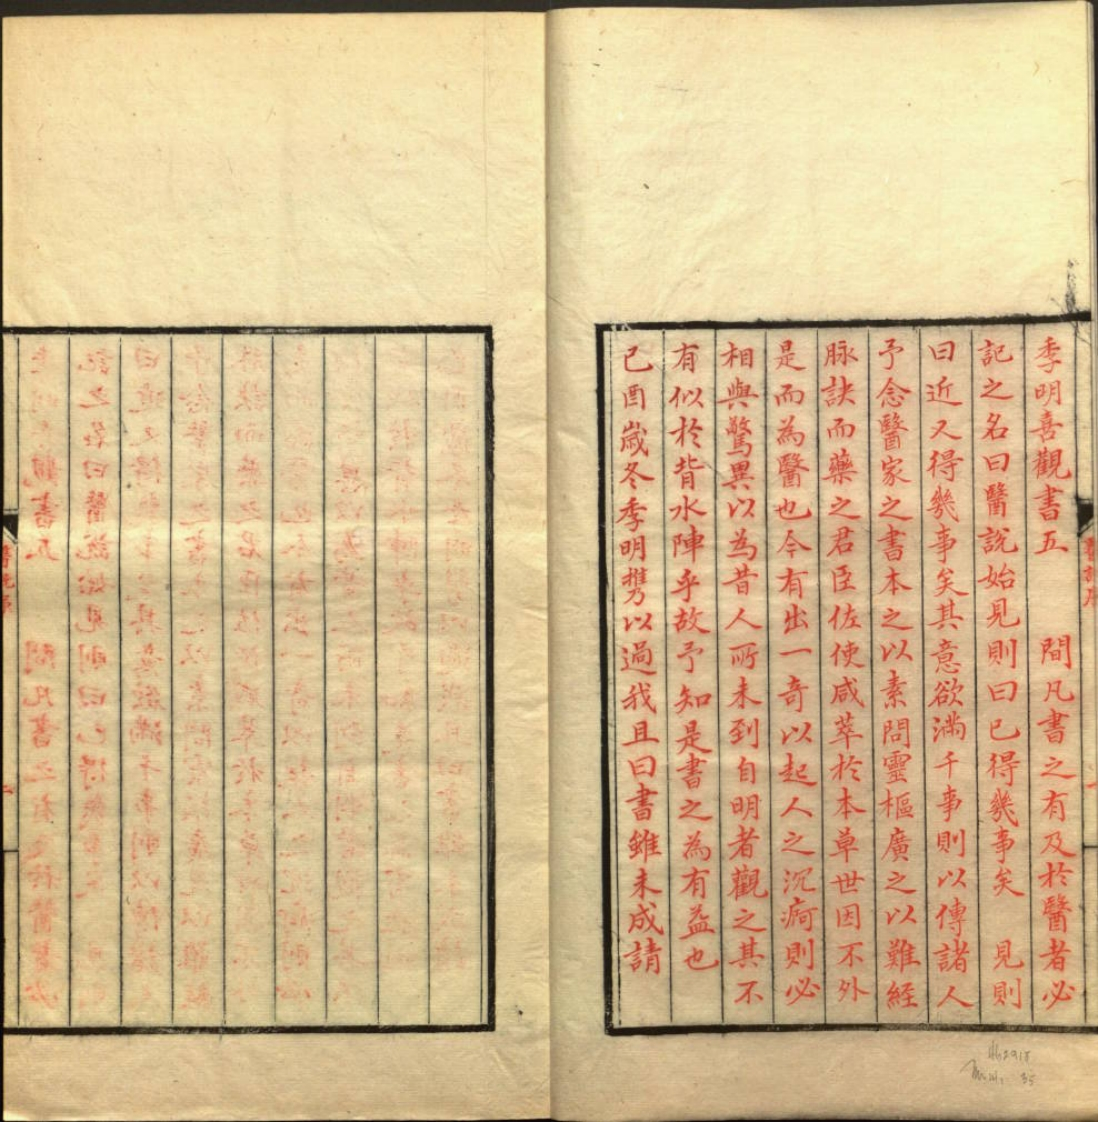 季明喜觀書五　間凡書之有及於醫者必
記之名曰醫說始見則曰已得幾事矣　見則
曰近又得幾事矣其意欲滿千事則以傳諸人
予念醫家之書本之以素問靈樞廣之以難經
脉訣而藥之君臣佐使咸萃於本草世因不外
是而為醫也今有出一奇以起人之沉痾則必
相與驚異以為昔人所未到自明者觀之其不
有似於背水陣乎故予知是書之為有益也
己酉歲冬季明携以過我且曰書雖未成請